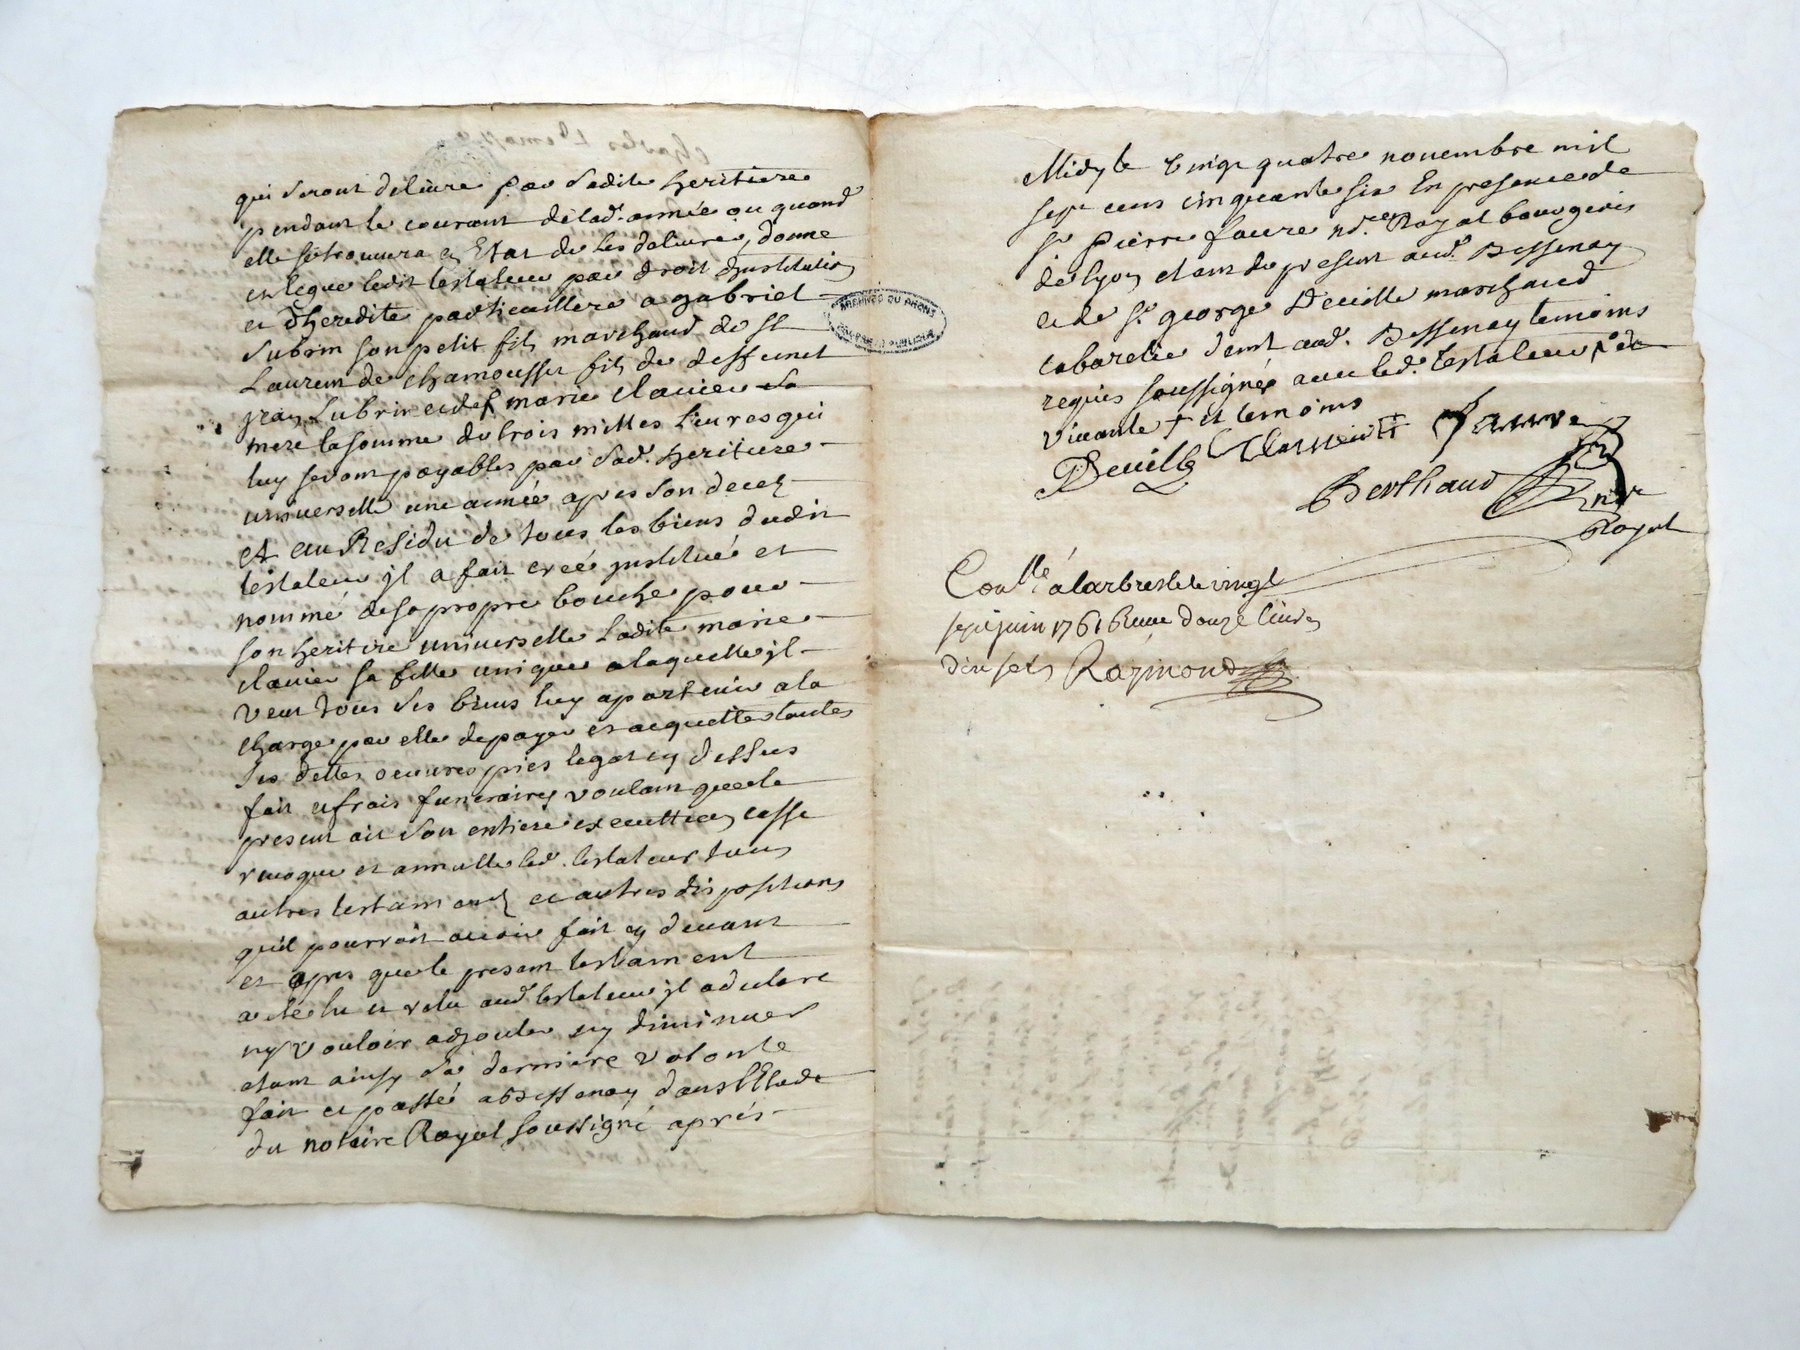 qui seront delivre par sadite heritiere
pendant le courant de lad. année ou quand
elle se trouvera en Etat de les delivrer, donne
et legue ledit testateur par droit dinstitution
et dheredite particulliere a gabriel
Subrin son petit fils marchand de st
Laurent de chamousset fils de deffunct
jean Subrin et de marie clavier sa
mere la somme de trois milles livres qui
luy seront payables par sad. heritiere
universelle une année apres son decez
et au Residu de tous les biens dudit
testateur jl a fait creé jnstitué et
nommé de sa propre bouche pour
son heritire universelle Ladite marie
clavier sa fille unique a laquelle jl
veut tous ses biens luy apartenir a la
charge par elle de payer et acquetter toutes
ses dettes oeuvres pies legat cy dessus
fait et frais funeraires voulant que le
present ait son entiere execution casse
revoque et annulle led. testateur tous
autres testaments et autres dispositions
quil pourroit avoir fait cy devant
et apres que le present testament
a ete lu et relu aud. testateur jl a declare
ny vouloir adjouter ny diminuer
etant ainsy sa derniere volonte
fait et passé a Bessenay dans l'Etude
du notaire Royal soussigné aprés
Midy le vingt quatre novembre mil
sept cens cinquante six En presence de
sr pierre faure nd. Royal bourgeois
de lyon etant de present aud. Bessenay
et de sr. george Deville marchand
cabaretier demt aud. Bessenay temoins
requis soussignés avec led. testateur
et temoins
Deville Clavier Faure
Berthaud nre
Royal
Conlle a larbresle le vingt
sept juin 1761 Reçu douze livres
dix sols Raymond
ARCHIVES DU RHONE